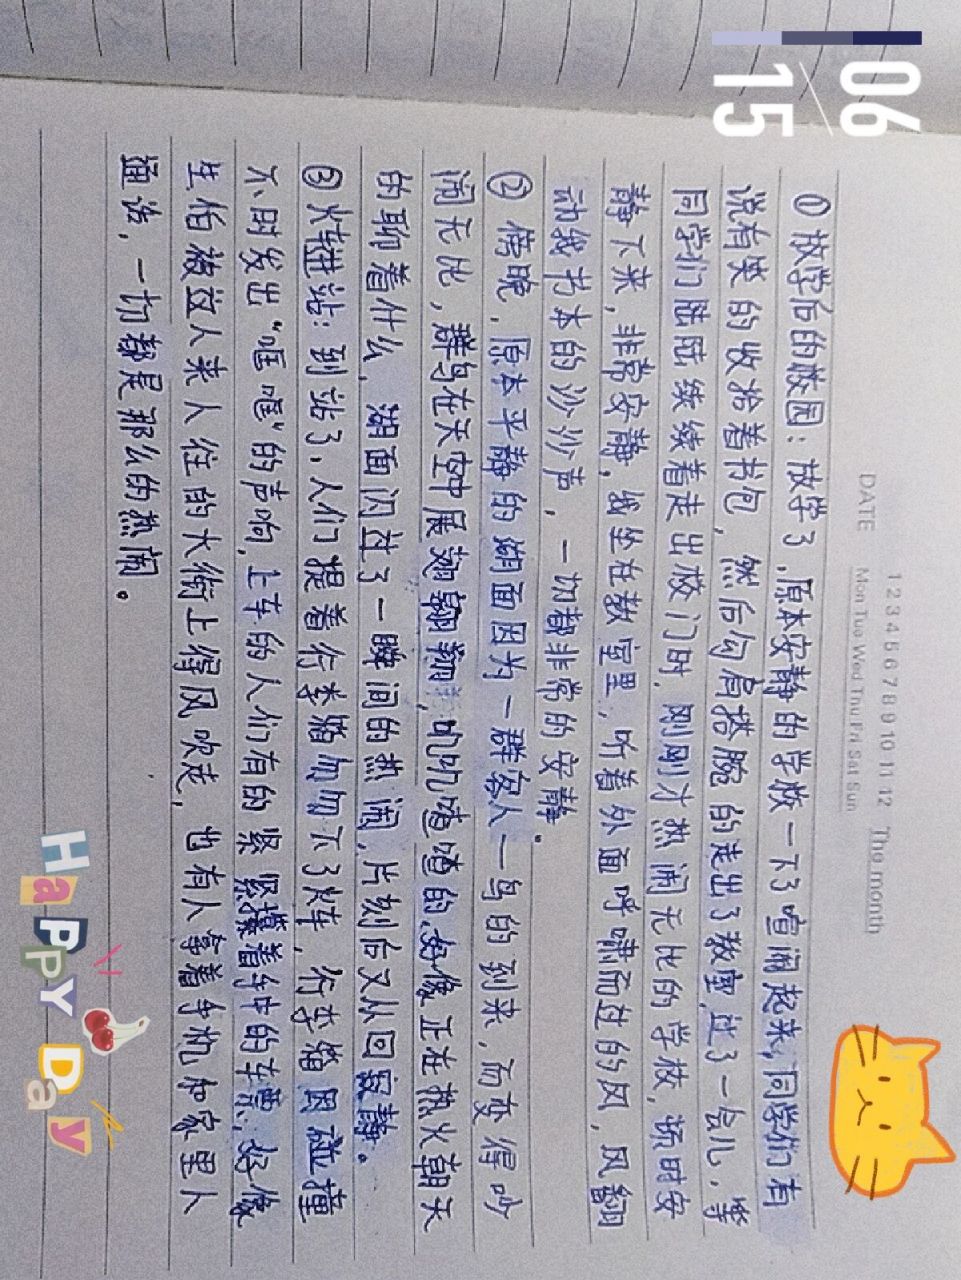 06
15
DATE
1 2 3 4 5 6 7 8 9 10 11 12 The month
Mon Tue Wed Thu Fri Sat Sun
①放学后的校园：放学了，原本安静的学校一下了喧闹起来，同学们有
说有笑的收拾着书包，然后勾肩搭腕的走出了教室，过了一会儿，等
同学们陆陆续续着走出校门时，刚刚才热闹无比的学校，顿时安
静下来，非常安静，我坐在教室里，听着外面呼啸而过的风，风翻
动纸书本的沙沙声，一切都非常的安静。
②傍晚，原本平静的湖面因为一群客人—鸟的到来，而变得吵
闹无比，群鸟在天空中展翅翱翔，叽叽喳喳的，好像正在热火朝天
的聊着什么，湖面闪过了一瞬间的热闹，片刻后又从回寂静。
③火车站：到站了，人们提着行李箱匆匆下了火车，行李箱因碰撞
不时发出“哐哐”的声响，上车的人们有的紧紧攥着手中的车票，好像
生怕被这人来人往的大街上得风吹走，也有人拿着手机和家里人
通话，一切都是那么的热闹。
HaPPY Day